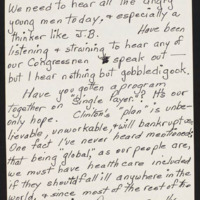 We need to hear all the angry
young men today, & especially a
thinker like J.B. Have been
listening & straining to hear any of
our Cohgreesmen speak out —
but I hear nothing but gobbledigook.
Have you gotten a program
together on "Single Payer"? It's our
only hope. Clinton's "plan" is unbe-
lievable, unworkable, & will bankrupt us.
One fact I've never heard mentioned,
that being "global," as our people are,
we must have healthcare included
if they should fall ill anywhere in the
world, & since most of the rest of the